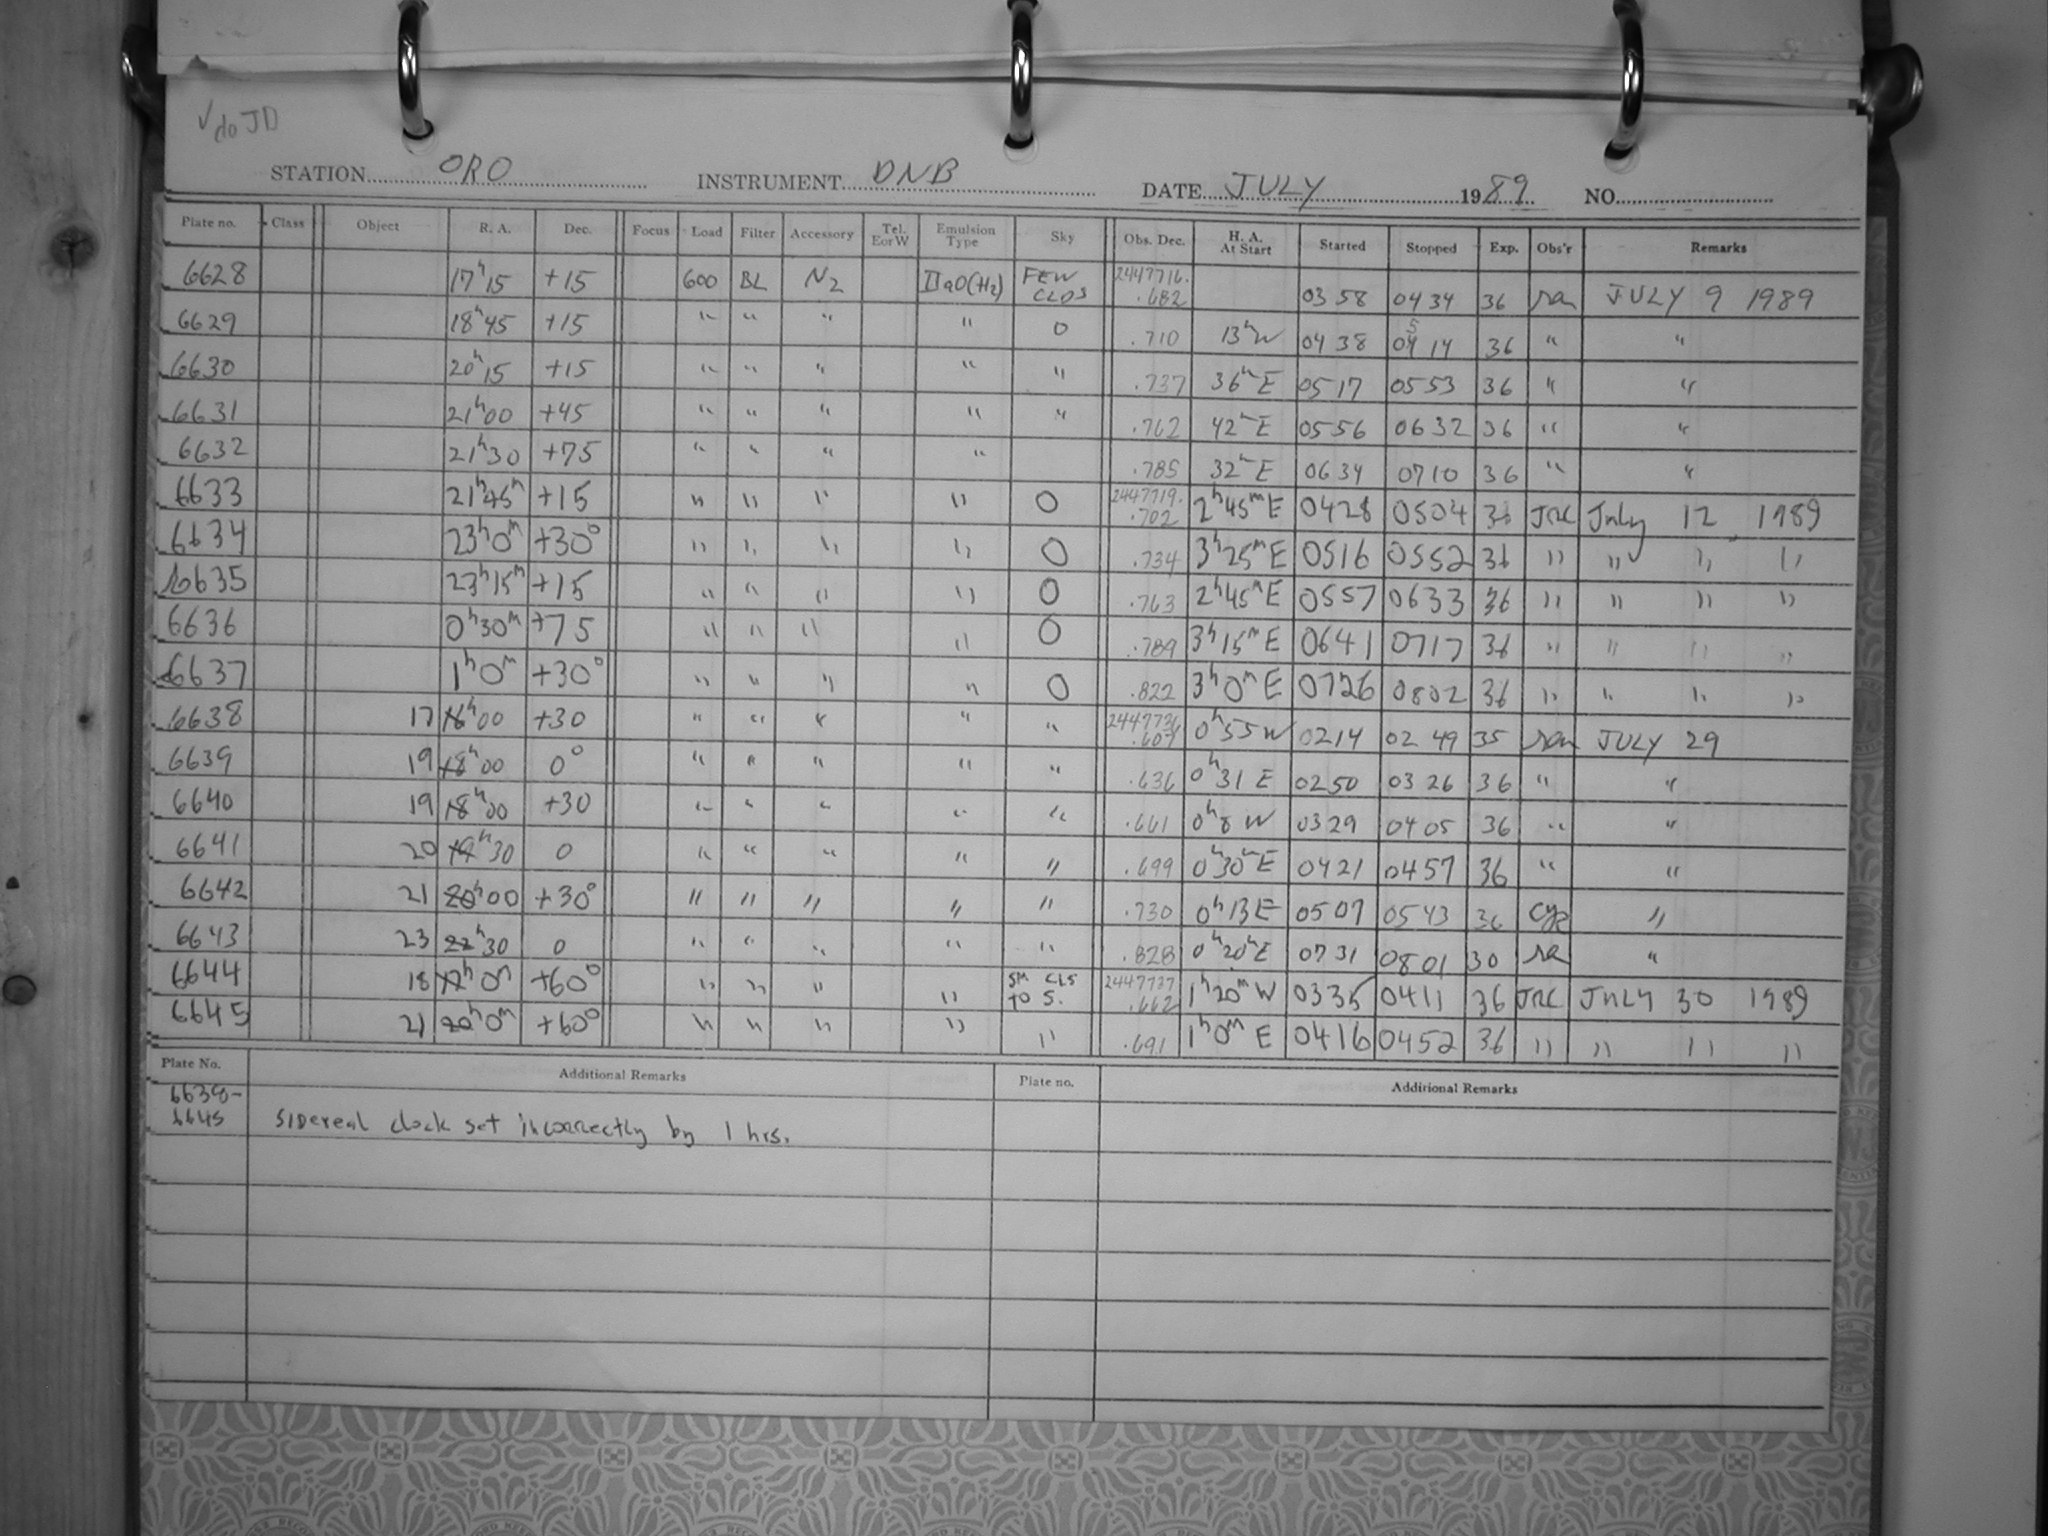 √ do JD
STATION ORO INSTRUMENT DNB DATE JULY 1989 NO.
Plate no. Class Object R. A. Dec. Focus Load Filter Accessory Tel. E or W Emulsion Type Sky Obs. Dec. H. A. At Start Started Stopped Exp. Obs'r Remarks
6628 17h15 +15 600 BL N2 IIaO(H2) FEW CLDS 2447716. .682 0358 0434 36 ra JULY 9 1989
6629 18h45 +15 " " " " 0 .710 13mW 0438 0514 36 " "
6630 20h15 +15 " " " " " .737 36mE 0517 0553 36 " "
6631 21h00 +45 " " " " " .762 42mE 0556 0632 36 " "
6632 21h30 +75 " " " " .785 32mE 0634 0710 36 " "
6633 21h45m +15 " " " " 0 2447719. .702 2h45mE 0428 0504 36 JRC July 12, 1989
6634 23h0m +30° " " " " 0 .734 3h25mE 0516 0552 36 " " " "
6635 23h15m +15 " " " " 0 .763 2h45mE 0557 0633 36 " " " "
6636 0h30m +75 " " " " 0 .789 3h15mE 0641 0717 36 " " " "
6637 1h0m +30° " " " " 0 .822 3h0mE 0726 0802 36 " " " "
6638 17 h00 +30 " " " " " 2447736 .607 0h55W 0214 0249 35 ran JULY 29
6639 19 18h00 0° " " " " " .636 0h31 E 0250 0326 36 " "
6640 19 18h00 +30 " " " " " .661 0h8 W 0329 0405 36 " "
6641 20 19h30 0 " " " " " .699 0h30mE 0421 0457 36 " "
6642 21 20h00 +30° " " " " " .730 0h13E 0507 0543 36 "
6643 23 22h30 0 " " " " " .828 0h20mE 0731 0801 30 ra "
6644 18 17h0m +60° " " " " SM CLS TO S. 2447737 .662 1h20mW 0335 0411 36 JRC JULY 30 1989
6645 21 20h0m +60° " " " " " .691 1h0m E 0416 0452 36 " " " "
Plate No. Additional Remarks Plate no. Additional Remarks
6638-
6645 Sidereal clock set incorrectly by 1 hrs.